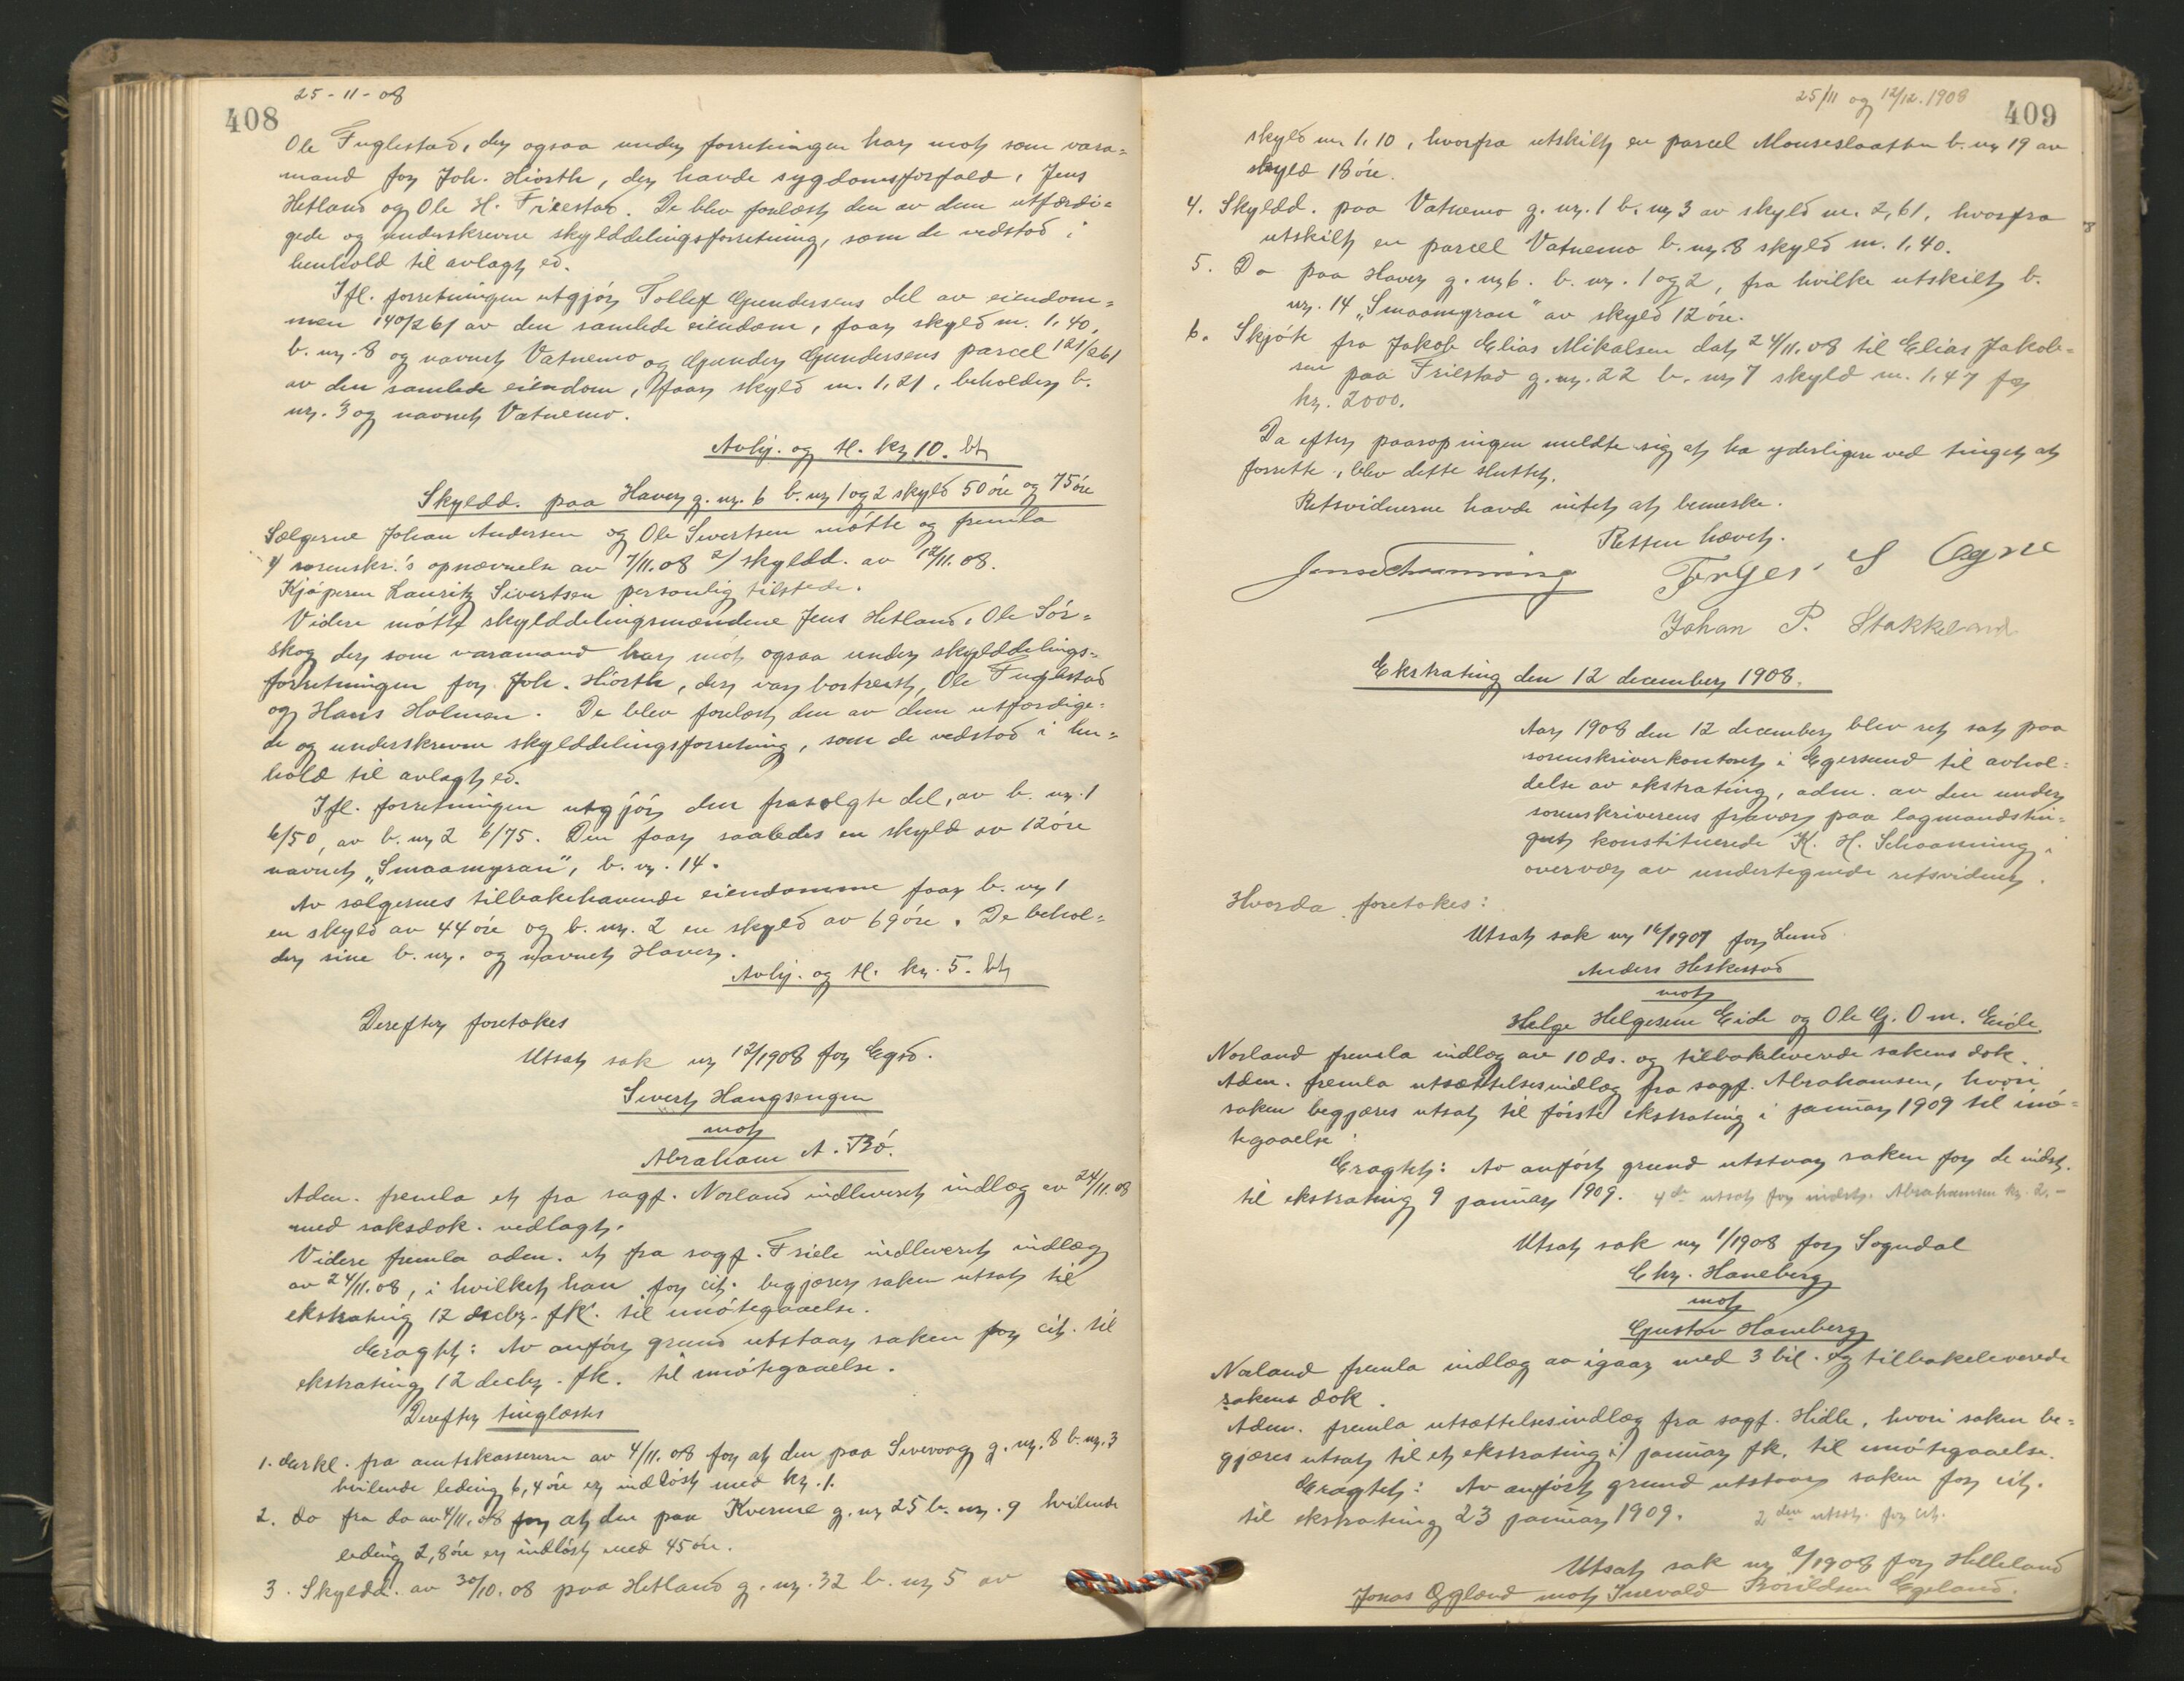 408
25-11-08
Ole Fuglestad, der ogsaa under forretningen har møtt som vara=
mand for Joh. Hiorth, der havde sygdomsforfald, Jens
Hetland og Ole H. Friestad. De blev forelæst den av dem utfærdi=
gede og underskrevne skylddelingsforretning, som de vedstod i
henhold til avlagt ed.
Ifl. forretningen utgjør Tollef Gundersens del av eiendom=
men 140/261 av den samlede eiendom, faar skyld m. 1,40,
b. nr. 8 og navnet Vatnemo og Gunder Gundersens parcel 121/261
av den samlede eiendom, faar skyld m. 1,21, beholder b.
nr. 3 og navnet Vatnemo.
Avhj. og tl. kr 10. bt
Skyldd. paa Haver g. nr. 6 b. nr 1 og 2 skyld 50 øre og 75 øre
Sælgerne Johan Andersen og Ole Sivertsen møtte og fremla
1/ sorenskr.'s opnævnelse av 7/11.08 2/ skyldd. av 12/11.08.
Kjøperen Lauritz Sivertsen personlig tilstede.
Videre møtte skylddelingsmændene Jens Hetland, Ole Sør=
skog der som varamand har møtt ogsaa under skylddelings=
forretningen for Joh. Hiorth, der var bortreist, Ole Fuglestad
og Hans Holmen. De blev forelæst den av dem utfærdige=
de og underskrevne skylddelingsforretning, som de vedstod i hen=
hold til avlagt ed.
Ifl. forretningen utgjør den frasolgte del, av b. nr. 1
6/50, av b. nr 2 6/75. Den faar saaledes en skyld av 12 øre
navnet „Smaamyran", b. nr. 14.
Av sælgernes tilbakehavende eiendomme faar b. nr 1
en skyld av 44 øre og b. nr. 2 en skyld av 69 øre. De behol=
der sine b. nr. og navnet Haver.
Avhj. og tl. kr. 5. bt
Derefter foretokes
Utsat sak nr 12/1908 for Egsd.
Sivert Haugsengen
mot
Abraham A. Bø.
Adm. fremla et fra sagf. Norland indleveret indlæg av 24/11.08
med saksdok. vedlagt.
Videre fremla adm. et fra sagf. Friele indleveret indlæg
av 24/11.08, i hvilket han for cit. begjærer saken utsat til
ekstrating 12 decbr. fk. til imøtegaaelse.
Eragtet: Av anført grund utstaar saken for cit. til
ekstrating 12 decbr. fk. til imøtegaaelse.
Derefter tinglæstes
1. Erkl. fra amtskasserern av 4/11.08 for at den paa Sirevaag g. nr. 8 b. nr. 3
hvilende leding 6,4 øre er indløst med kr. 1.
2. do fra do av 4/11.08 for at den paa Kverme g. nr 25 b. nr. 9 hvilende
leding 2,8 øre er indløst med 45 øre.
3. Skyldd. av 30/10.08 paa Hetland g. nr. 32 b. nr 5 av
25/11 og 12/12.1908
409
skyld m. 1.10, hvorfra utskilt en parcel Mouseslaatten b. nr 19 av
skyld 18 øre.
4. Skyldd. paa Vatnemo g. nr. 1 b. nr 3 av skyld m. 2,61, hvorfra
utskilt en parcel Vatnemo b. nr. 8 skyld m. 1,40.
5. Do paa Haver g. nr 6. b. nr. 1 og 2, fra hvilke utskilt b.
nr. 14 „Smaamyran" av skyld 12 øre.
6. Skjøte fra Jakob Elias Mikalsen dat 24/11.08 til Elias Jakob=
sen paa Friestad g. nr. 22 b. nr 7 skyld m. 1,47 for
kr. 2000.
Da efter paaropingen meldte sig at ha yderligere ved tinget at
forrette, blev dette sluttet.
Retsvidnerne havde intet at bemerke.
Retten hævet.
Jens Schanning
S Ogne
Johan P. Stakkeland
Ekstrating den 12 december 1908.
Aar 1908 den 12 december blev ret sat paa
sorenskriverkontoret i Egersund til avhol=
delse av ekstrating, adm. av den under
sorenskriverens fravær paa lagmandstin=
get konstituerede K. H. Schaanning i
overvær av undertegnede retsvidner.
Hvorda foretokes:
Utsat sak nr 16/1907 for Lund
Anders Heskestad
mot
Helge Helgesen Eide og Ole G. O m. Eide
Norland fremla indlæg av 10 ds. og tilbakeleverede sakens dok.
Adm. fremla utsættelsesindlæg fra sagf. Abrahamsen, hvori
saken begjæres utsat til første ekstrating i januar 1909 til imø=
tegaaelse.
Eragtet: Av anført grund utstaar saken for de indst.
til ekstrating 9 januar 1909. 4de utsat for indst. Abrahamsen kr. 2,-
Utsat sak nr 1/1908 for Sogndal
Chr. Haneberg
mot
Gustav Haneberg
Norland fremla indlæg av igaar med 3 bil. og tilbakeleverede
sakens dok.
Adm. fremla utsættelsesindlæg fra sagf. Hidle, hvori saken be=
gjæres utsat til et ekstrating i januar fk. til imøtegaaelse.
Eragtet: Av anført grund utstaar saken for cit.
til ekstrating 23 januar 1909. 2den utsat. for cit.
Utsat sak nr 2/1908 for Helleland
Jonas Øgland mot Inevald Borildsen Egeland.